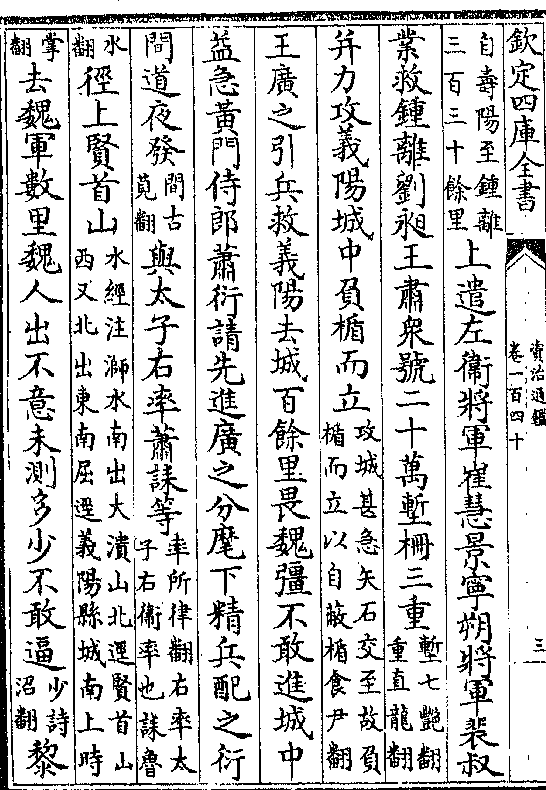 欽定四庫全書
資治通鑑
卷一百四十
三
自壽陽至鍾離三百三十餘里上遣左衛將軍崔慧景寧朔將軍裴叔
業救鍾離劉昶王肅衆號二十萬塹柵三重塹七艷翻重直龍翻
并力攻義陽城中負楯而立攻城甚急矢石交至故負楯而立以自蔽楯食尹翻
王廣之引兵救義陽去城百餘里畏魏彊不敢進城中
益急黃門侍郎蕭衍請先進廣之分麾下精兵配之衍
間道夜發間古莧翻與太子右率蕭誄等率所律翻右率太子右衛率也誄魯
水翻徑上賢首山水經注溮水南出大潰山北逕賢首山西又北出東南屈逕義陽縣城南上時
掌翻去魏軍數里魏人出不意未測多少不敢逼少詩沼翻黎